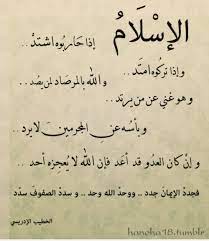 الإسْلامُ إذا حاربوه اشتدّ ..
وإذا تركوه امتد .. والله بالمرصاد لمن يصد ..
وهو غني عن من يرتد ..
وبأسه عن المجرمين لا يرد ..
وإن كان العدو قد أعد فإن الله لا يعجزه أحد ..
فجدد الإيمان جدد .. ووحد الله وحد .. وسدد الصفوف سدد
الخطيب الإدريسي
hanoha18.tumblr